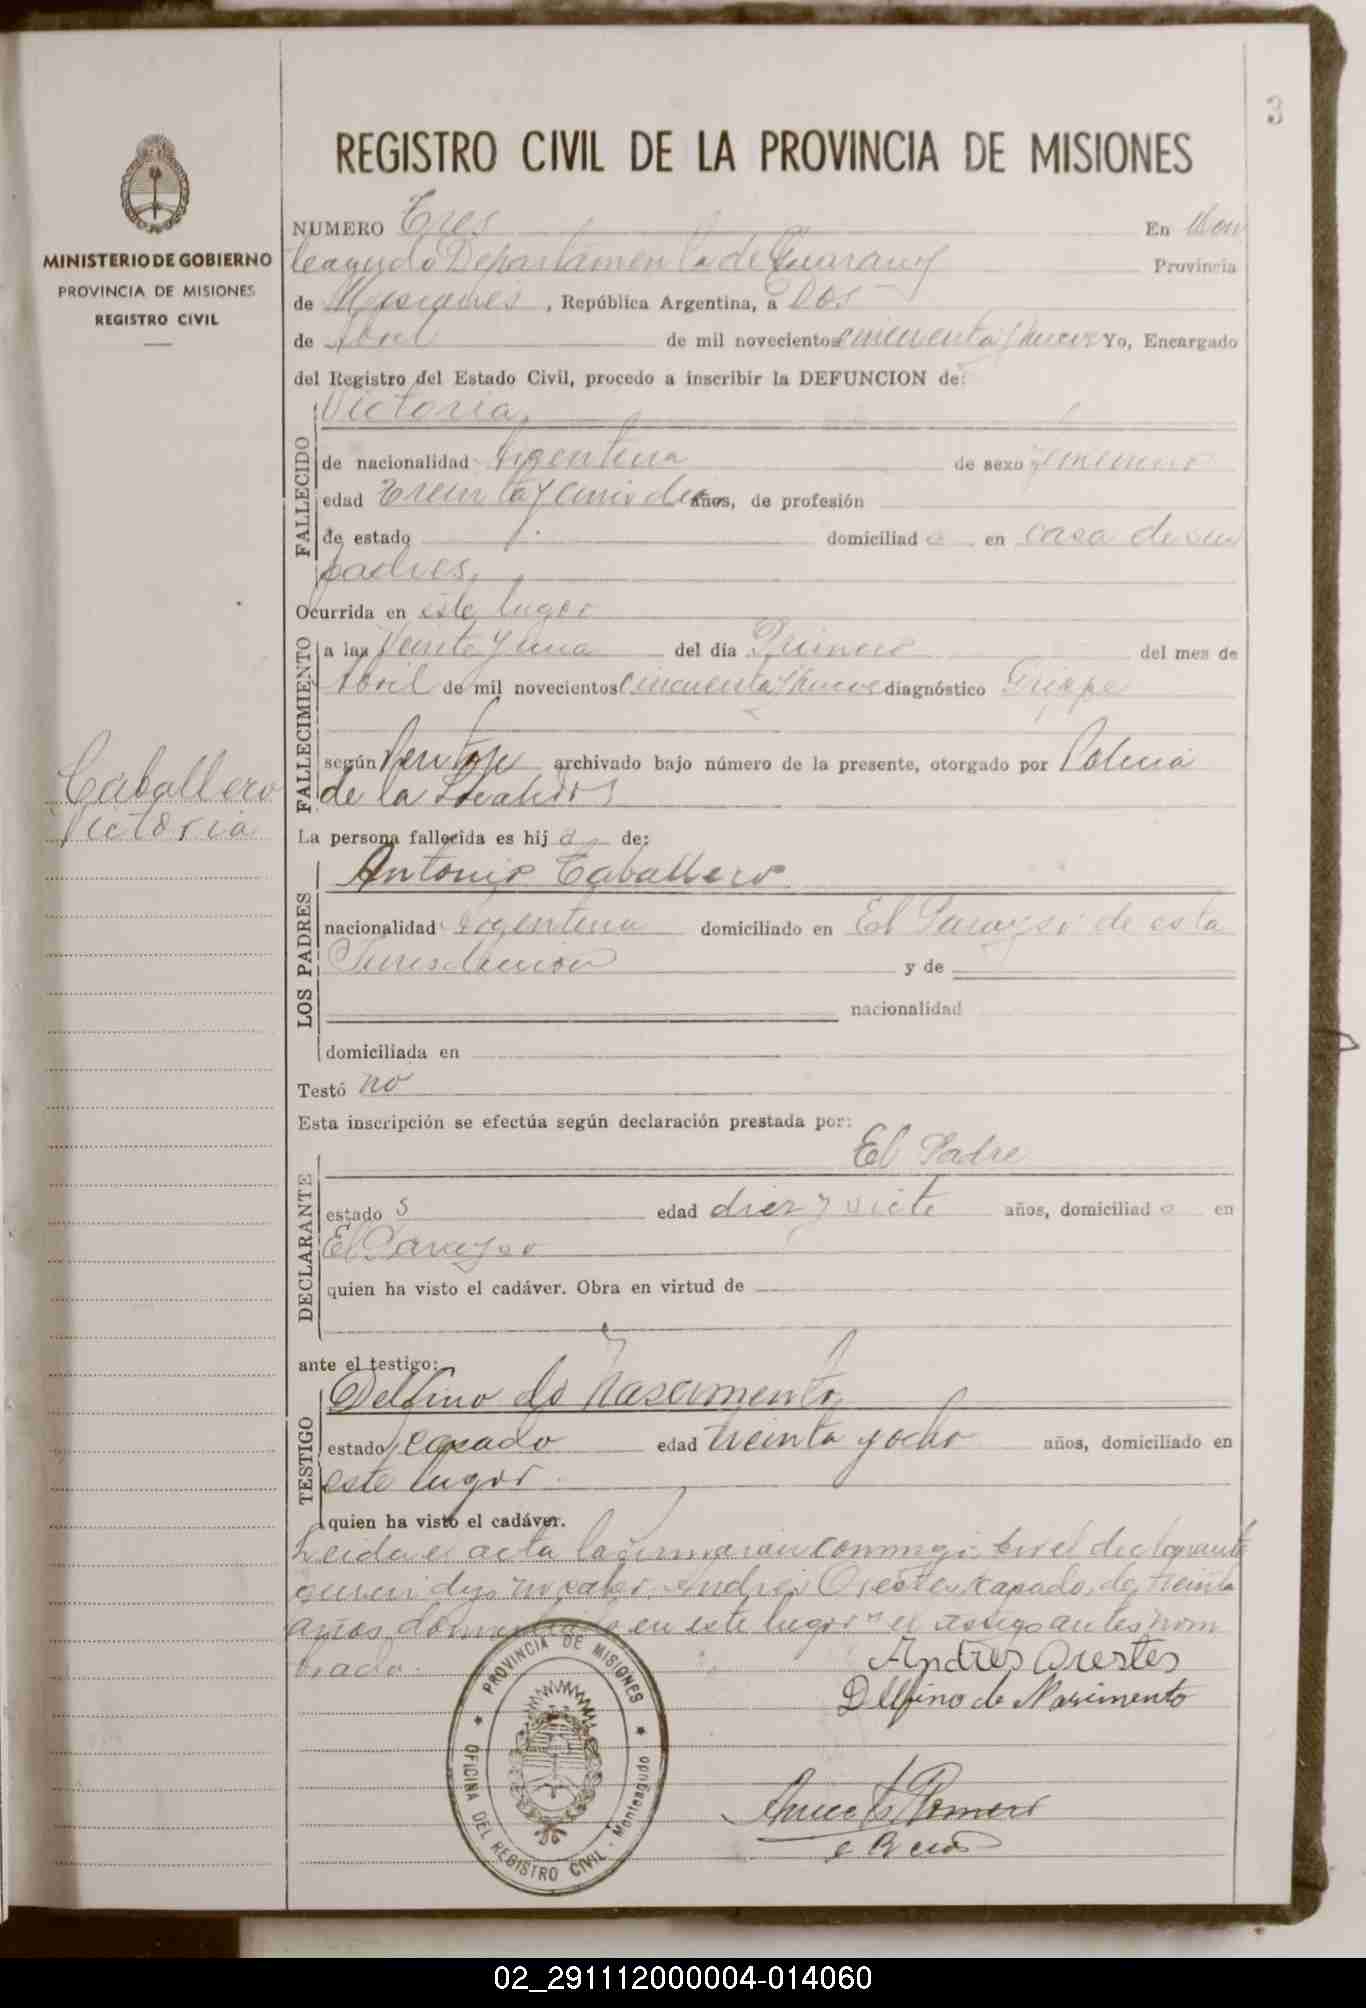 3
MINISTERIO DE GOBIERNO
PROVINCIA DE MISIONES
REGISTRO CIVIL
Caballero
Victoria
REGISTRO CIVIL DE LA PROVINCIA DE MISIONES
NUMERO Tres En Mon
teagudo Departamento de Guarany Provincia
de Misiones, República Argentina, a Dos
de Abril de mil novecientos cincuenta y nueve Yo, Encargado
del Registro del Estado Civil, procedo a inscribir la DEFUNCION de:
FALLECIDO
Victoria
de nacionalidad Argentina de sexo femenino
edad Treinta y cinco dias años, de profesión
de estado domiciliad a en casa de sus
padres
Ocurrida en este lugar
FALLECIMIENTO
a las Veinte y una del día Primero del mes de
Abril de mil novecientos cincuenta y nueve diagnóstico Grippe
según archivado bajo número de la presente, otorgado por Policia
de la Localidad
La persona fallecida es hij a de:
LOS PADRES
Antonio Caballero
nacionalidad argentina domiciliado en El Parayso de esta
Jurisdiccion y de
nacionalidad
domiciliada en
Testó no
Esta inscripción se efectúa según declaración prestada por:
DECLARANTE
El Padre
estado S edad diez y siete años, domiciliad o en
El Parayso
quien ha visto el cadáver. Obra en virtud de
ante el testigo:
TESTIGO
Delfino do Nascimento
estado casado edad treinta y ocho años, domiciliado en
este lugar
quien ha visto el cadáver.
Leida el acta la firmaron conmigo por el declarante
quien dijo no saber, Andres Orestes, casado, de treinta
años domiciliado en este lugar y el testigo antes nom
brado.
Andres Orestes
Delfino de Nasimento
PROVINCIA DE MISIONES
OFICINA DEL REGISTRO CIVIL - Monteagudo
Romero
02_291112000004-014060